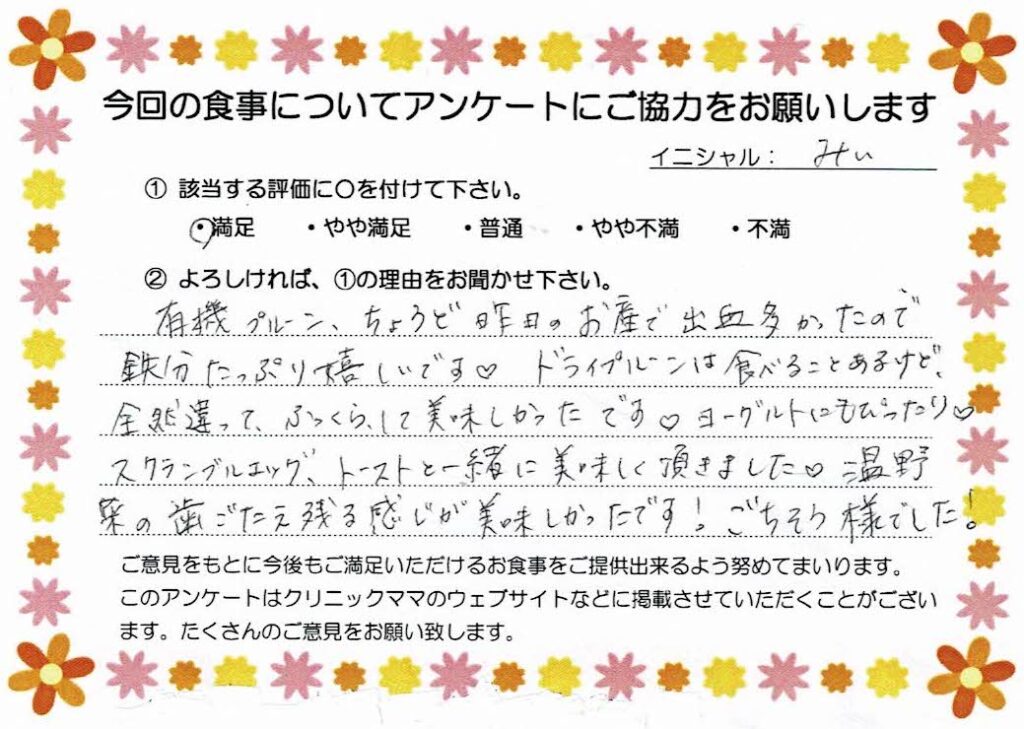 今回の食事についてアンケートにご協力をお願いします
イニシャル： みぃ
① 該当する評価に〇を付けて下さい。
・満足 ・やや満足 ・普通 ・やや不満 ・不満
② よろしければ、①の理由をお聞かせ下さい。
有機プルーン、ちょうど昨日のお産で出血多かったので
鉄分たっぷり嬉しいです♡ ドライプルーンは食べることあるけど、
全然違って、ふっくらして美味しかったです♡ヨーグルトにもぴったり♡
スクランブルエッグ、トーストと一緒に美味しく頂きました♡温野
菜の歯ごたえ残る感じが美味しかったです！ごちそう様でした！
ご意見をもとに今後もご満足いただけるお食事をご提供出来るよう努めてまいります。
このアンケートはクリニックママのウェブサイトなどに掲載させていただくことがござい
ます。たくさんのご意見をお願い致します。